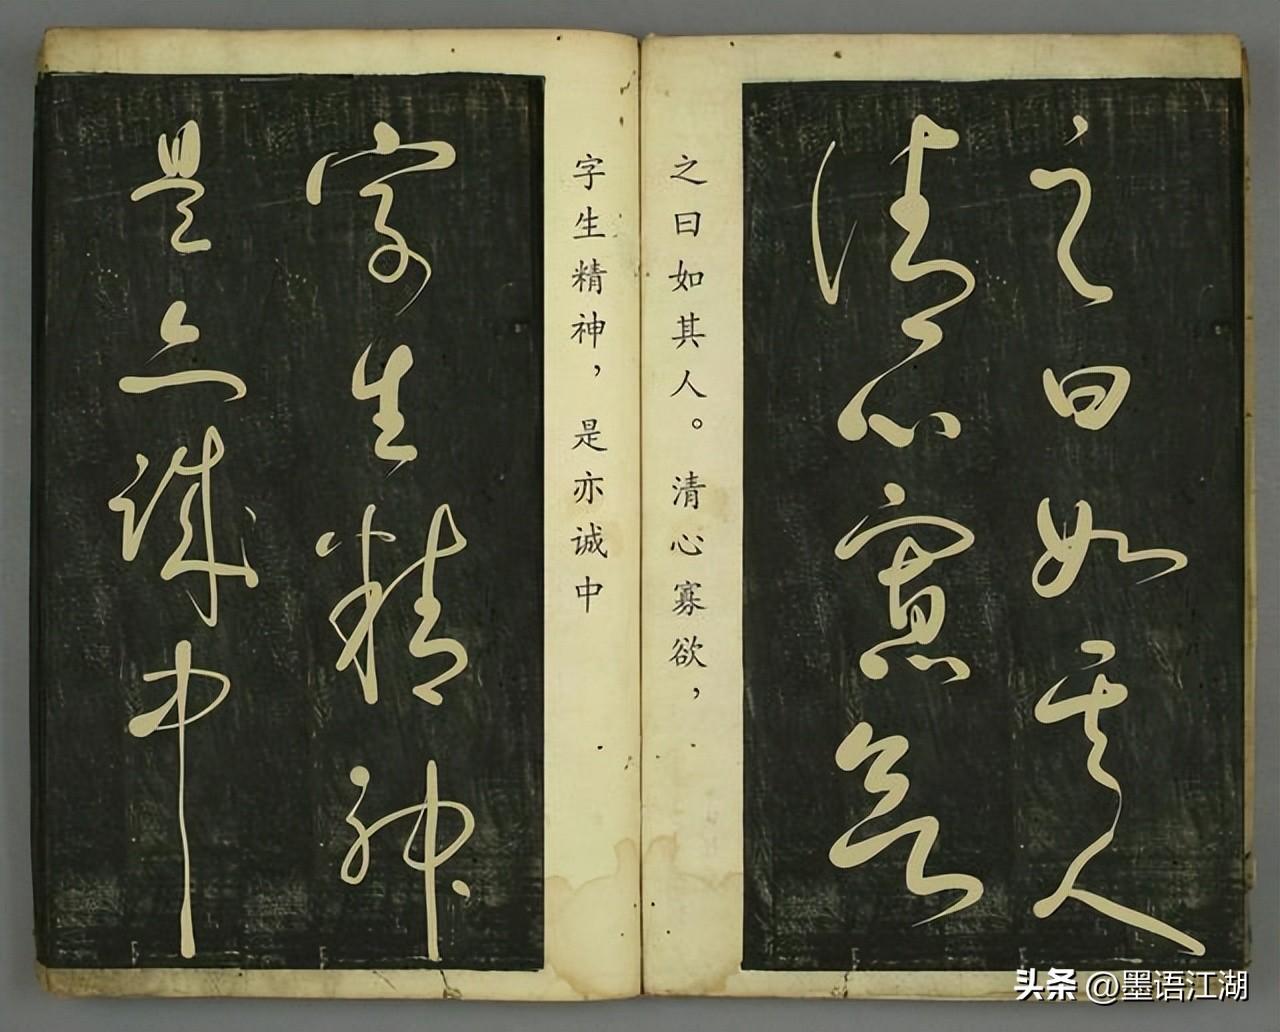 之曰如其人
清心寡欲
之曰如其人。清心寡欲，
字生精神，是亦诚中
字生精神
是亦诚中
头条 @墨语江湖